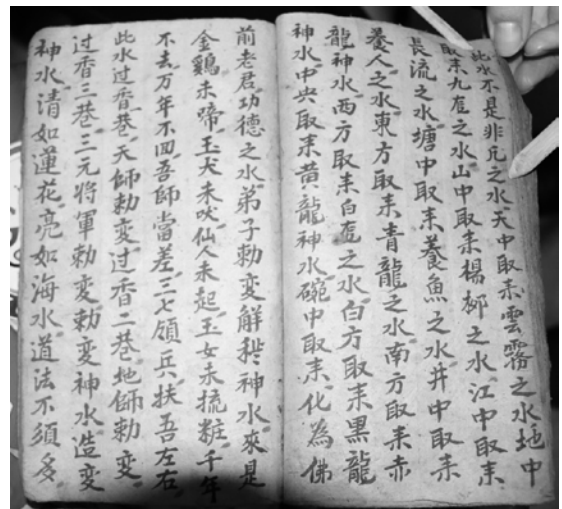 此水不是非凡之水天中取来雲霧之水地中
取来九之水山中取来楊柳之水江中取来
長流之水塘中取来養魚之水井中取来
養人之水東方取来青龍之水南方取来赤
龍神水西方取来白之水白方取来黑龍
神水中央取来黄龍神水碗中取来化為佛
前老君功德之水弟子勅变解神水來是
金鷄未啼玉犬未吠仙人未起玉女未梳粧千年
不去万年不回吾師當差三七領兵扶吾左右
此水过香巷天師勅变过香二巷地師勅变
过香三巷三元將軍勅变勅变神水造变
神水清如蓮花亮如海水道法不須多